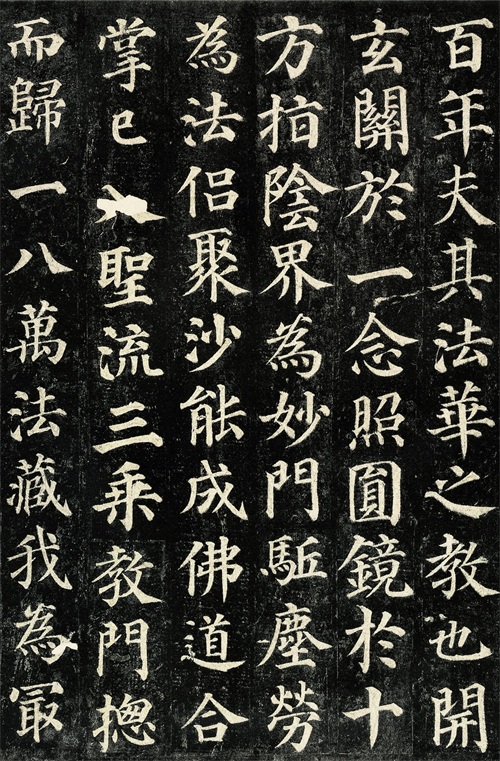 百年夫其法華之教也開
玄關於一念照圓鏡於十
方指陰界為妙門駈塵勞
為法侶聚沙能成佛道合
掌已入聖流三乘教門摠
而歸一八萬法藏我為冣